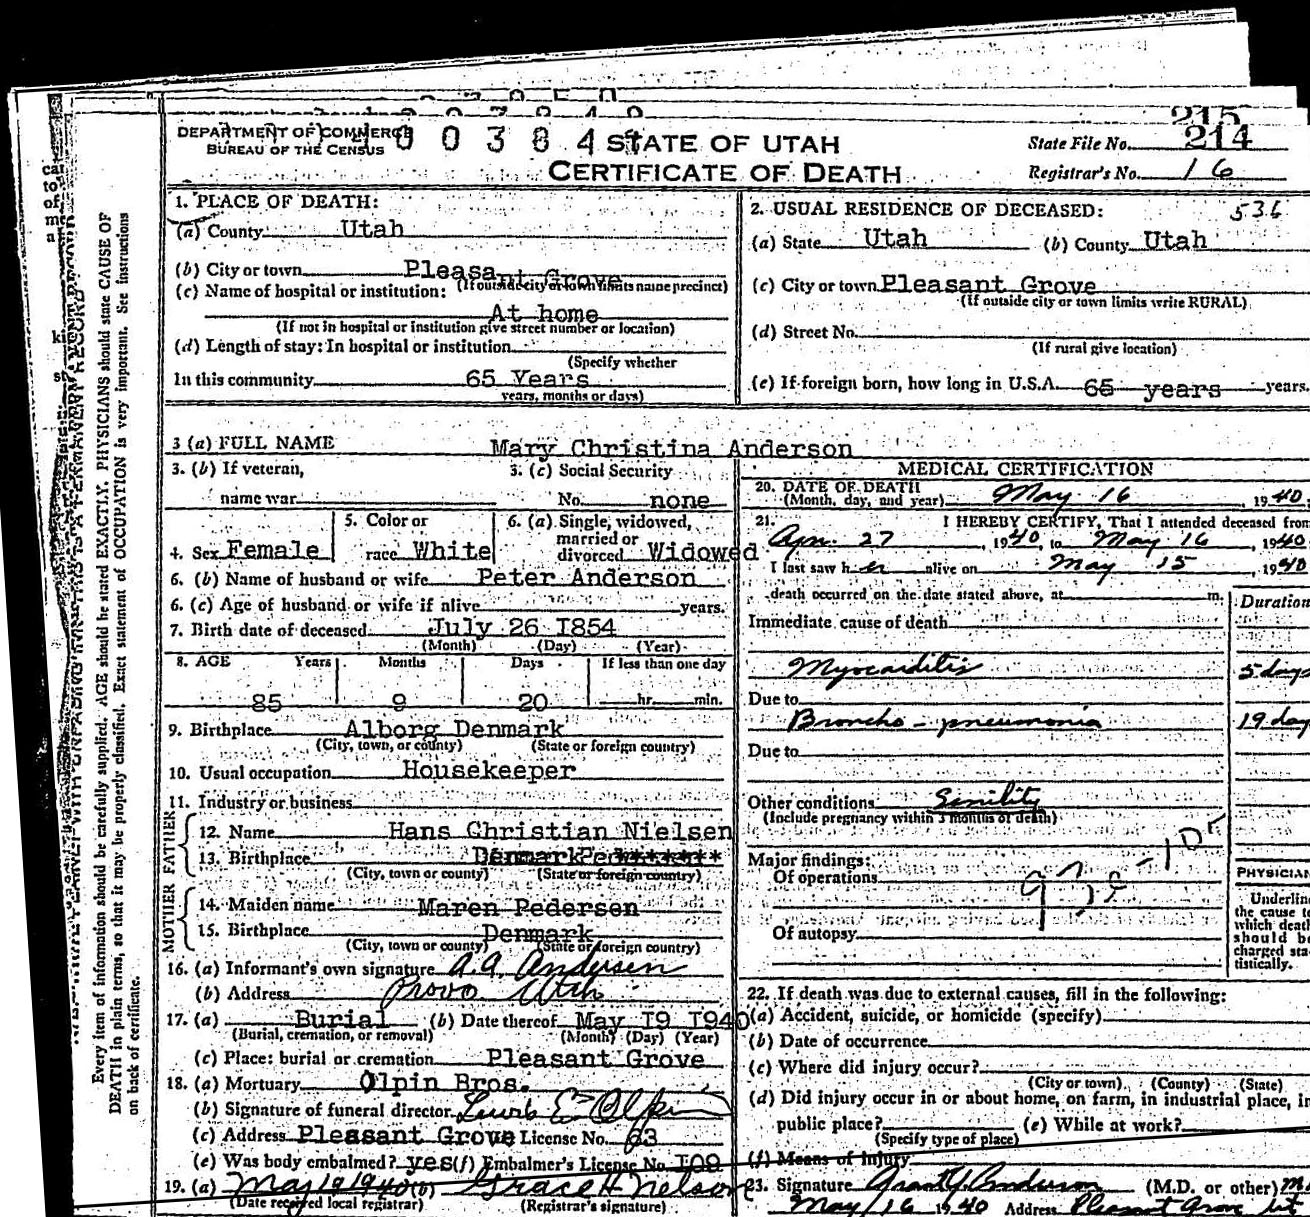 215
DEPARTMENT OF COMMERCE
BUREAU OF THE CENSUS
STATE OF UTAH
CERTIFICATE OF DEATH
State File No. 214
Registrar's No. 16
1. PLACE OF DEATH:
(a) County Utah
(b) City or town Pleasant Grove
(If outside city or town limits name precinct)
(c) Name of hospital or institution:
At home
(If not in hospital or institution give street number or location)
(d) Length of stay: In hospital or institution
(Specify whether
In this community 65 Years
years, months or days)
2. USUAL RESIDENCE OF DECEASED: 536
(a) State Utah (b) County Utah
(c) City or town Pleasant Grove
(If outside city or town limits write RURAL)
(d) Street No.
(If rural give location)
(e) If foreign born, how long in U.S.A. 65 years years.
3 (a) FULL NAME Mary Christina Anderson
3. (b) If veteran,
name war
3. (c) Social Security
No. none
4. Sex Female
5. Color or
race White
6. (a) Single, widowed,
married or
divorced Widowed
6. (b) Name of husband or wife Peter Anderson
6. (c) Age of husband or wife if alive years.
7. Birth date of deceased July 26 1854
(Month) (Day) (Year)
8. AGE Years Months Days If less than one day
85 9 20 hr. min.
9. Birthplace Alborg Denmark
(City, town, or county) (State or foreign country)
10. Usual occupation Housekeeper
11. Industry or business
FATHER
12. Name Hans Christian Nielsen
13. Birthplace Denmark
(City, town or county) (State or foreign country)
MOTHER
14. Maiden name Maren Pedersen
15. Birthplace Denmark
(City, town or county) (State or foreign country)
16. (a) Informant's own signature A. A. Andersen
(b) Address Provo Utah
17. (a) Burial (b) Date thereof May 19 1940
(Burial, cremation, or removal) (Month) (Day) (Year)
(c) Place: burial or cremation Pleasant Grove
18. (a) Mortuary Olpin Bros.
(b) Signature of funeral director
(c) Address Pleasant Grove License No. 63
(e) Was body embalmed? yes (f) Embalmer's License No. 109
19. (a) May 19 1940 (b) Grace H Nelson
(Date received local registrar) (Registrar's signature)
MEDICAL CERTIFICATION
20. DATE OF DEATH
(Month, day, and year) May 16, 1940
21. I HEREBY CERTIFY, That I attended deceased from
Apr. 27, 1940, to May 16, 1940
I last saw her alive on May 15 1940
death occurred on the date stated above, at m.
Duration
Immediate cause of death
Myocarditis 5 days
Due to
Broncho-pneumonia 19 day
Due to
Other conditions Senility
(Include pregnancy within 3 months of death)
Major findings:
Of operations
Of autopsy
PHYSICIAN
Underline
the cause to
which death
should be
charged sta-
tistically.
22. If death was due to external causes, fill in the following:
(a) Accident, suicide, or homicide (specify)
(b) Date of occurrence
(c) Where did injury occur?
(City or town) (County) (State)
(d) Did injury occur in or about home, on farm, in industrial place, in
public place? (e) While at work?
(Specify type of place)
(f) Means of injury
23. Signature Grant Y. Anderson (M.D. or other)
May 16 1940 Address Pleasant Grove Ut
Every item of information should be carefully supplied. AGE should be stated EXACTLY. PHYSICIANS should state CAUSE OF
DEATH in plain terms, so that it may be properly classified. Exact statement of OCCUPATION is very important. See instructions
on back of certificate.